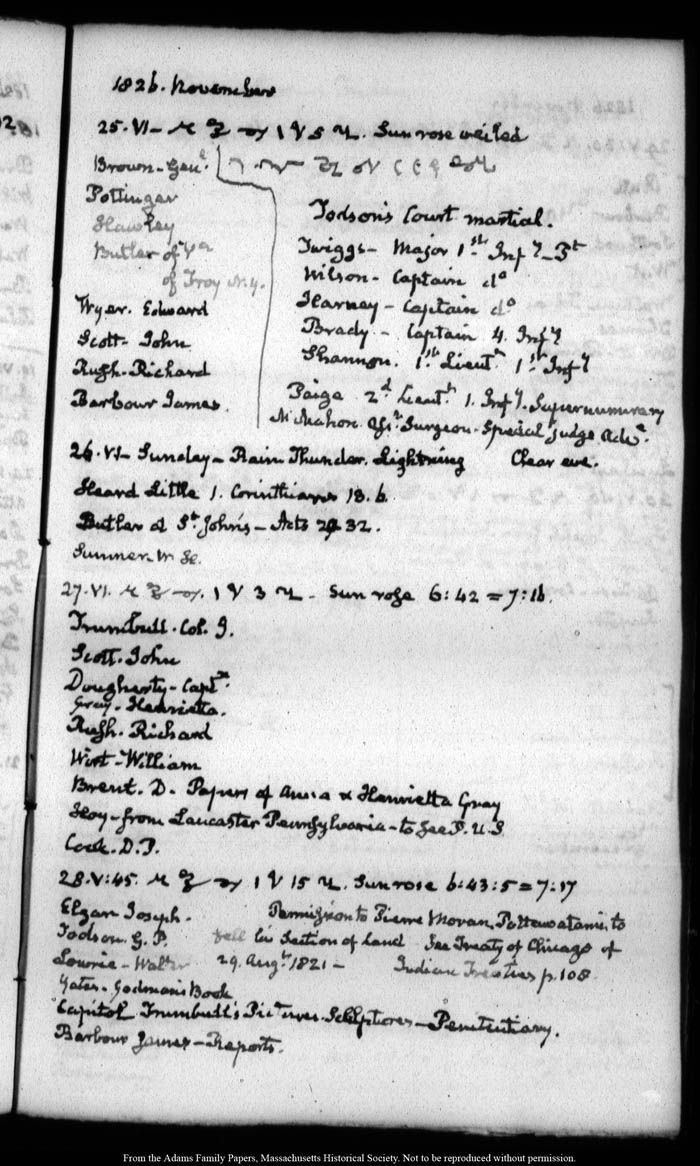 1826. November
25. VI - Sun rose veiled
Brown - Gen.l
Pottinger
Hawley
Butler of Va
of Troy N.Y.
Wyer. Edward
Scott - John
Rush - Richard
Barbour James.
Todson's Court martial.
Twiggs - Major 1.st Inf.y - Pt
Wilson - Captain do
Harney - Captain do
Brady - Captain 4. Inf.y
Shannon. 1.st Lieut.t 1.st Inf.y
Paige 2.d Lieut.t 1. Inf.y. Supernumerary
McMahon. Assist. Surgeon - Special Judge Adv.e
26. VI - Sunday - Rain Thunder. Lightning Clear eve.
Heard Little 1. Corinthians 13. 6.
Butler at St. John's - Acts 32.
Sumner. W. H.
27. VI. Sun rose 6:42 = 7:16.
Trumbull. Col. J.
Scott. John
Dougherty - Capt.n
Gray - Henrietta.
Rush. Richard
Wirt - William
Brent. D. Papers of Anna & Henrietta Gray
Hoy - from Lancaster Pennsylvania - to see P. U.S
Cook. D. P.
28. V:45. Sun rose 6:43:5 = 7:17
Elgar Joseph. Permission to Pierre Moran, Pottawatamie, to
Todson. G. P. sell his Section of Land See Treaty of Chicago of
Lowrie - Walter 29. Aug.t 1821 - Indian Treaties p. 108.
Yates - Godman's Book
Capitol Trumbull's Pictures. Sculptures - Penitentiary.
Barbour James - Reports.
From the Adams Family Papers, Massachusetts Historical Society. Not to be reproduced without permission.